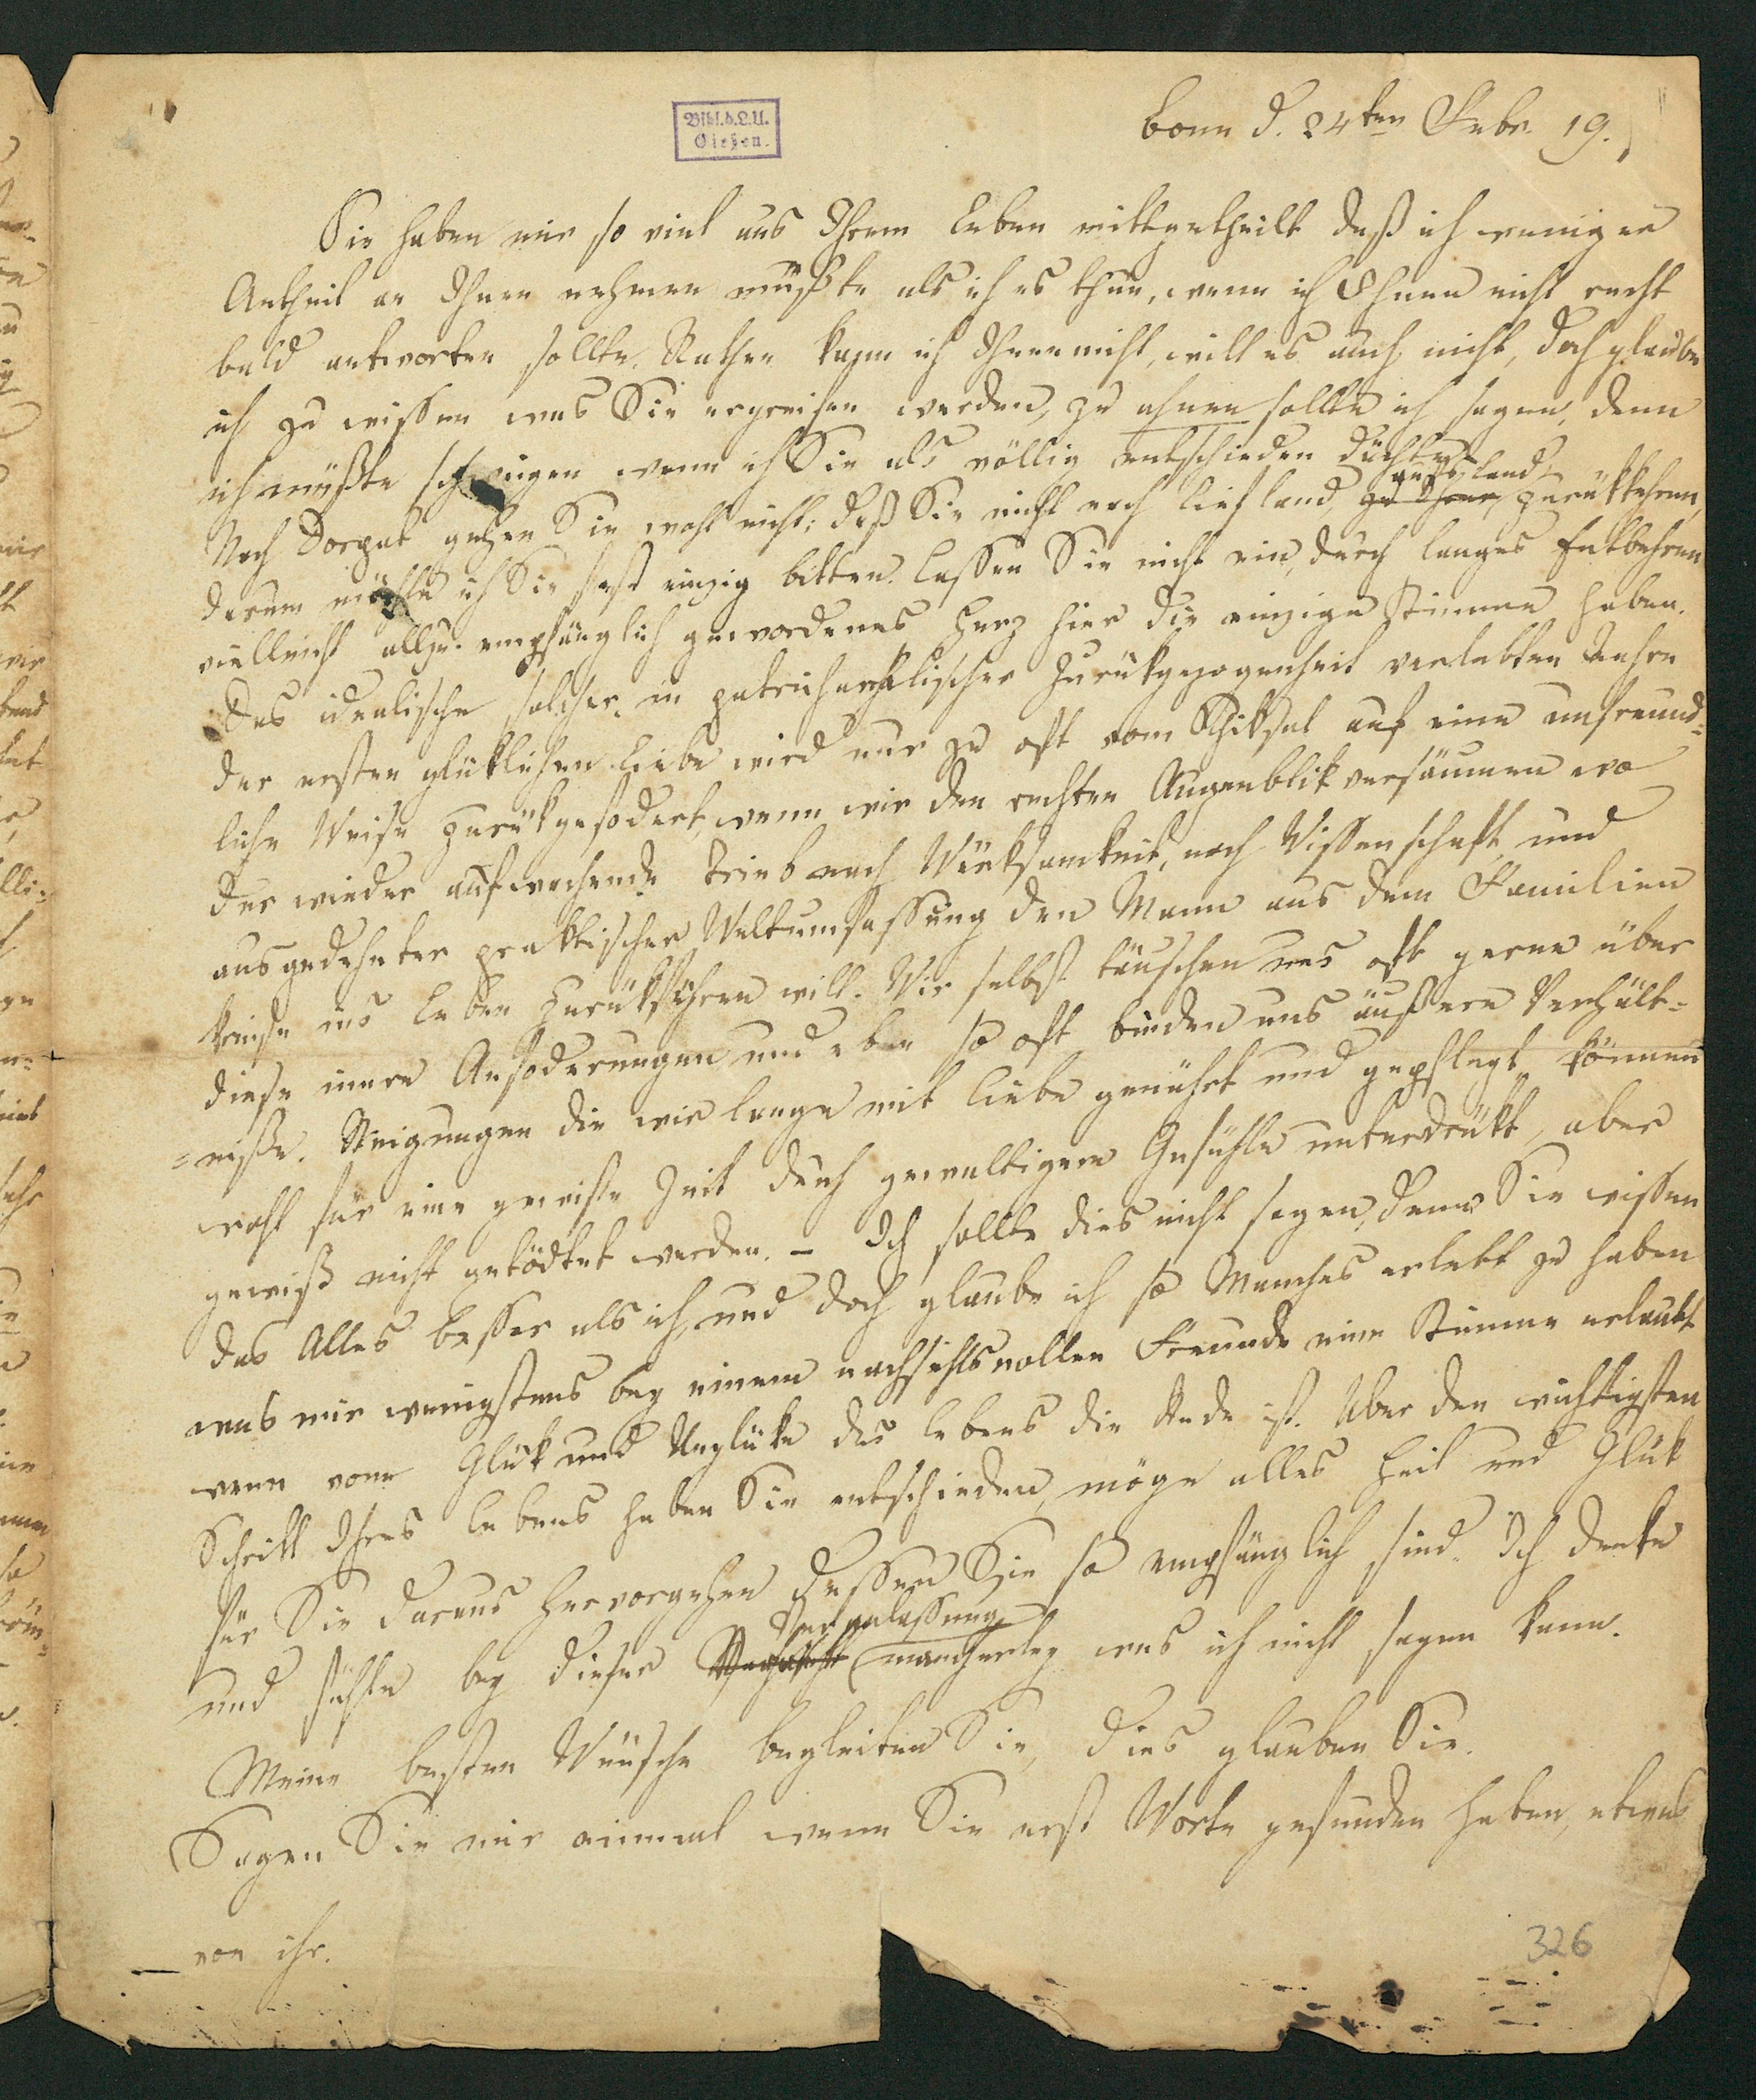 Bibl. d. L. U.
Gießen.
Bonn d. 24ten Febr. 19.
Sie haben mir so viel aus Ihrem Leben mittgetheilt daß ich weniger
Antheil an Ihnen nehmen müßte als ich es thue, wenn ich Ihnen nicht recht
bald antworten sollte. Rathen kann ich Ihnen nicht, will es auch nicht, doch glaube
ich zu wissen was Sie ergreifen werden, zu ahnen sollte ich sagen, denn
ich müßte schweigen wenn ich Sie als völlig entschieden dächte.
Nach Dorpat gehen Sie wohl nicht; daß Sie nicht nach Liefland, aufs Land zurükkehren,
darum möchte ich Sie fast einzig bitten. Lassen Sie nicht ein, durch langes Entbehren
vielleicht allzu empfänglich gewordenes Herz hier die einzige Stimme haben.
Das idealische solcher, in patriarchalischer Zurükgezogenheit verlebten Jahre
der ersten glüklichen Liebe wird nur zu oft vom Schiksal auf eine unfreund=
liche Weise zurükgefodert, wenn wir den rechten Augenblik versäumen wo
der wieder aufwachende Trieb nach Würksamkeit, nach Wissenschaft und
ausgedehnter praktischer Weltumfassung den Mann aus dem Familien
kreise ins Leben zurükführen will. Wir selbst täuschen uns oft gerne über
diese innere Anfoderungen und eben so oft binden uns äußere Verhält=
=niße. Neigungen die wir lange mit Liebe genährt und gepflegt können
wohl für eine gewisse Zeit durch gewaltigere Gefühle unterdrükt, aber
gewiß nicht getödtet werden. – Ich sollte dies nicht sagen, denn Sie wissen
das Alles besser als ich, und doch glaube ich so Manches erlebt zu haben
was mir wenigstens bey einem nachsichtsvollen Freunde eine Stimme erlaubt
wenn vom Glük und Unglüke des Lebens die Rede ist. Über den wichtigsten
Schritt Ihres Lebens haben Sie entschieden, möge alles Heil und Glük
für Sie daraus hervorgehen dessen Sie so empfänglich sind. Ich denke
und fühle bey dieser Veranlassung mancherley was ich nicht sagen kann.
Meine besten Wünsche begleiten Sie, dies glauben Sie.
Sagen Sie mir einmal wenn Sie erst Worte gefunden haben, etwas
von ihr.
326